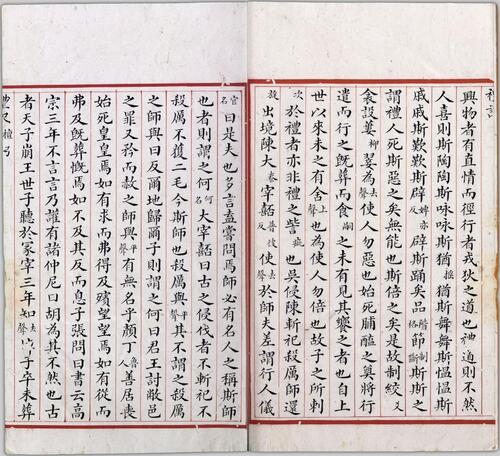 興物者有直情而徑行者戎狄之道也禮道則不然
人喜則斯陶陶斯咏咏斯猶搖猶斯舞舞斯慍慍斯
戚戚斯歎歎斯辟婢亦反辟斯踊矣品階格節制斷斯斯之
謂禮人死斯惡之矣無能也斯倍之矣是故制絞爻
衾設蔞柳翣為去聲使人勿惡也始死脯醢之奠將行
遣而行之既葬而食嗣之未有見其饗之者也自上
世以來未之有舍上聲也為使人勿倍也故子之所刺
次於禮者亦非禮之訾疵也吳侵陳斬祀殺厲師還
旋出境陳大泰宰嚭普彼反使去聲於師夫差謂行人儀
官名曰是夫也多言盍嘗問焉師必有名人之稱斯師
也者則謂之何何名大宰嚭曰古之侵伐者不斬祀不
殺厲不獲二毛今斯師也殺厲與平聲其不謂之殺厲
之師與曰反爾地歸爾子則謂之何曰君王討敝邑
之罪又矜而赦之師與平聲有無名乎顏丁魯人善居喪
始死皇皇焉如有求而弗得及殯望望焉如有從而
弗及既葬慨焉如不及其反而息子張問曰書云高
宗三年不言言乃讙有諸仲尼曰胡為其不然也古
者天子崩王世子聽於冢宰三年知去聲子卒未葬